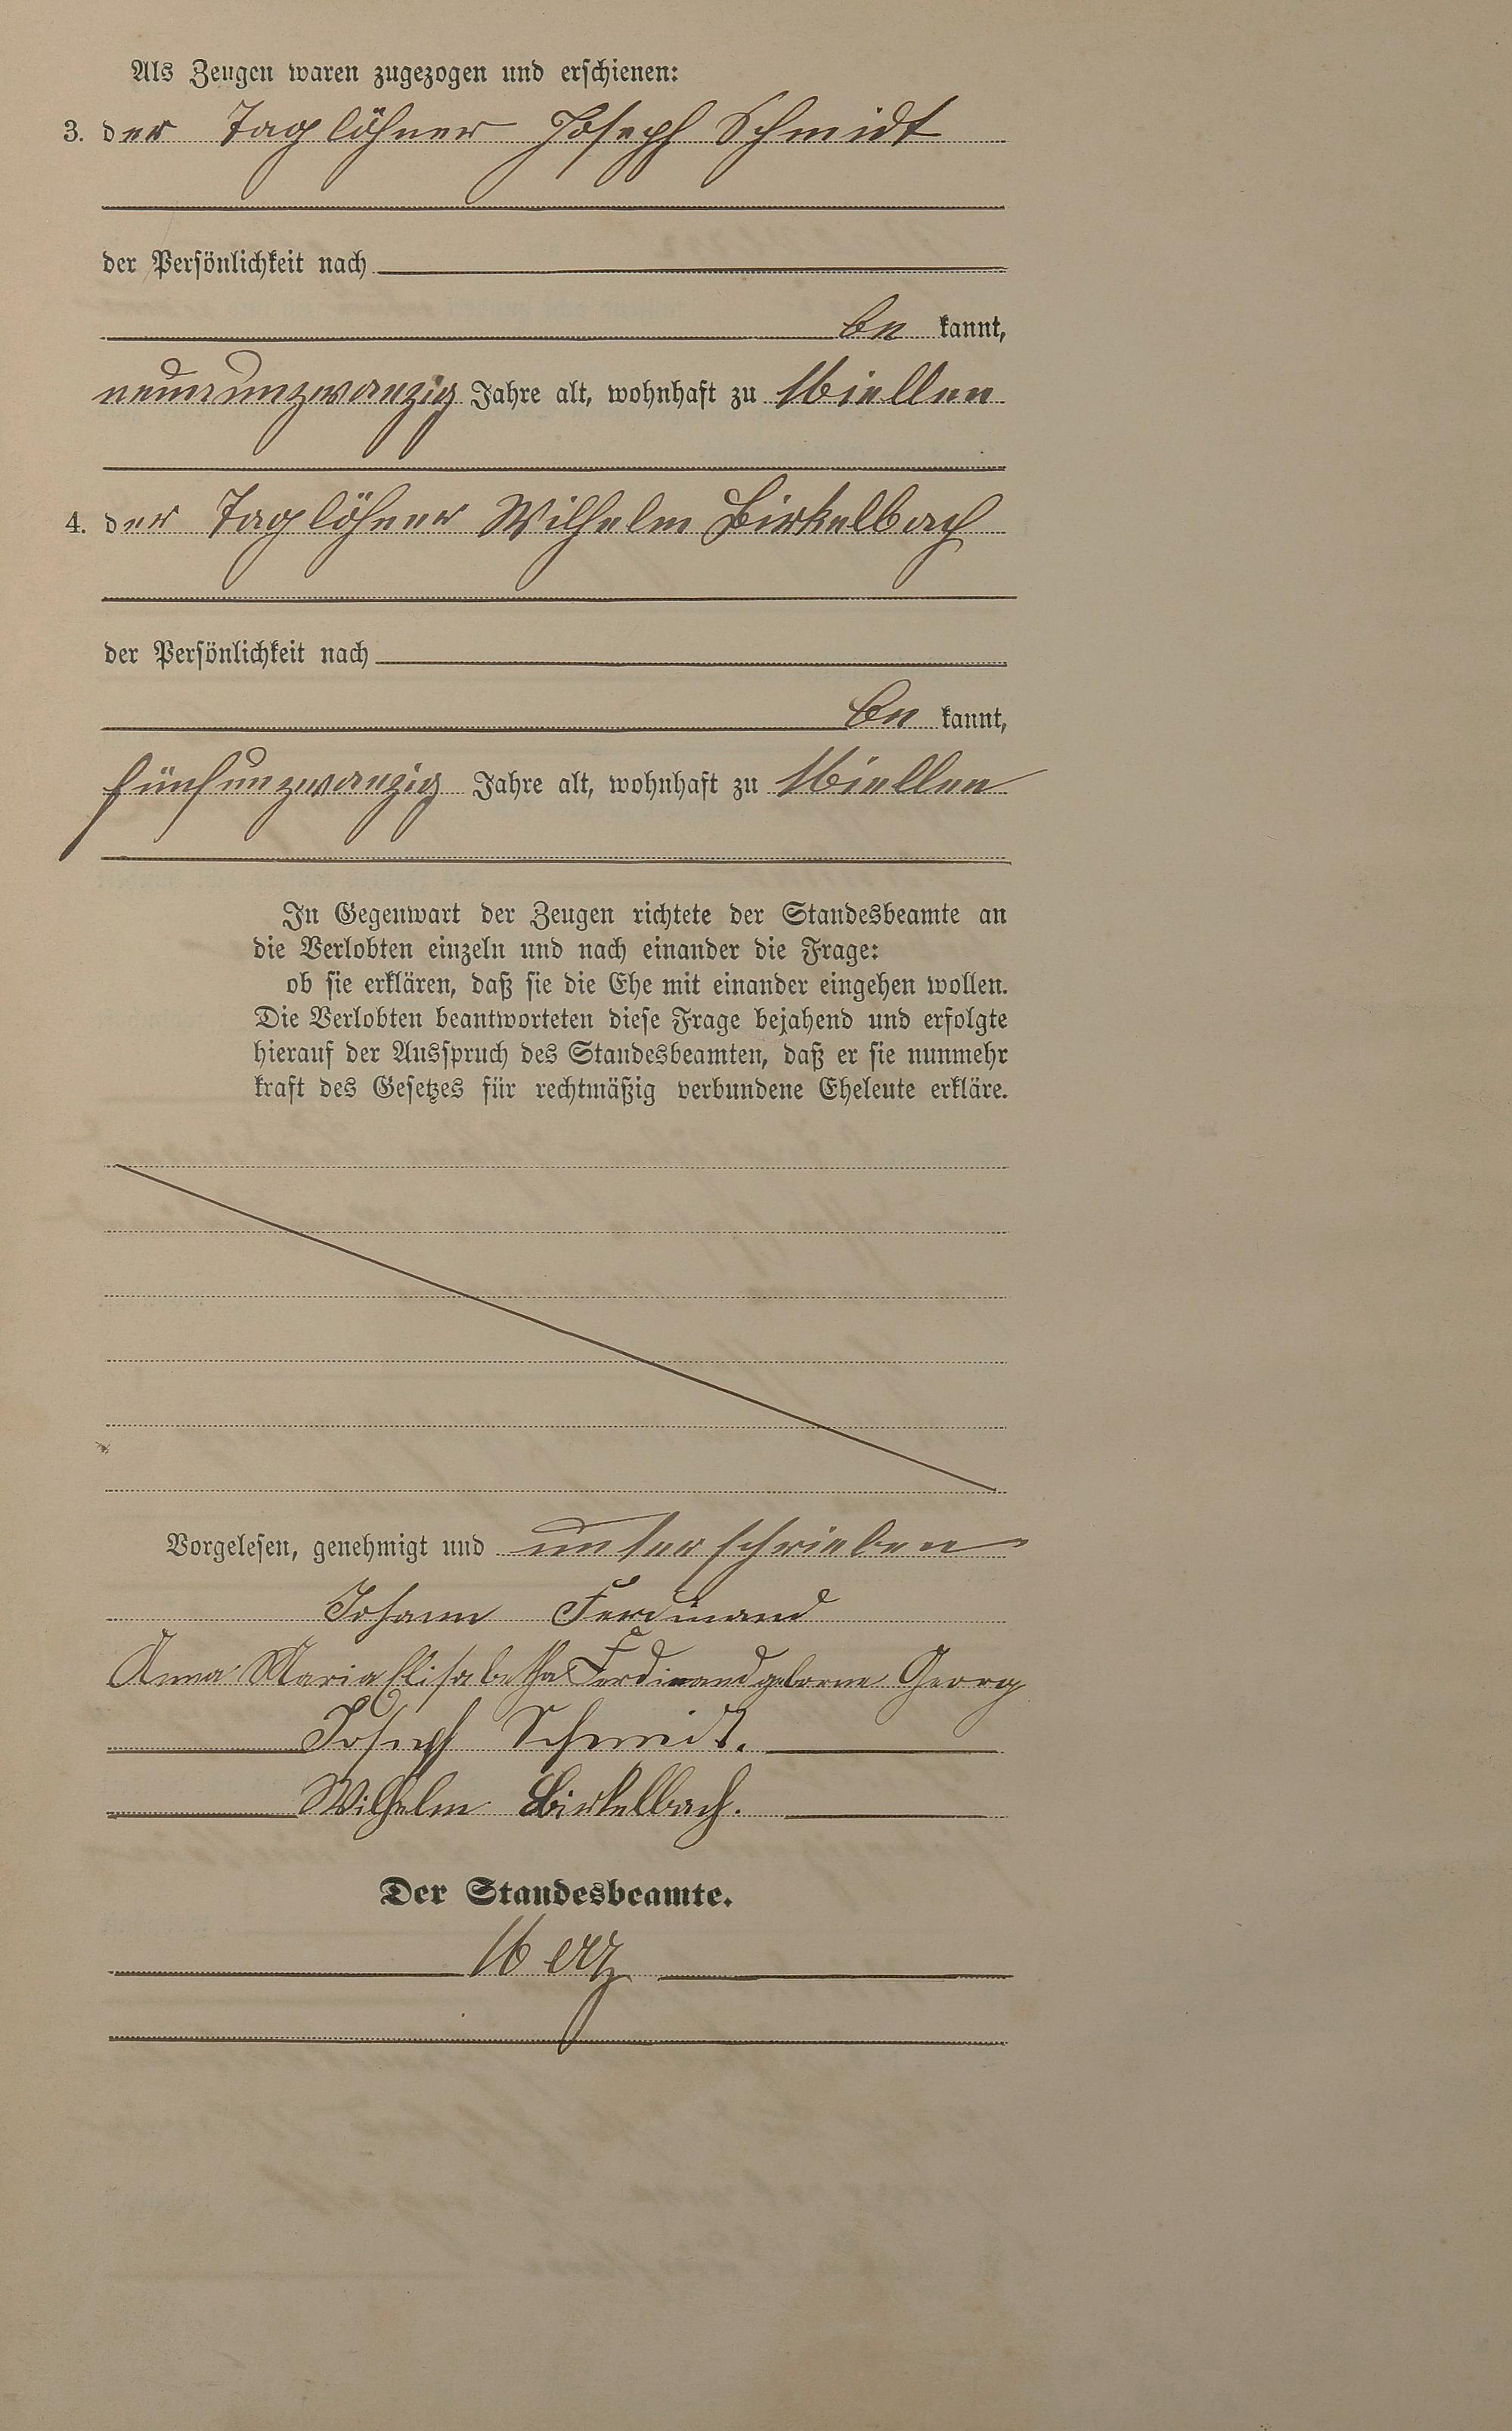 Als Zeugen waren zugezogen und erschienen:
3. der Taglöhner Joseph Schmidt
der Persönlichkeit nach
be kannt,
neununzwanzig Jahre alt, wohnhaft zu Miellen
4. der Taglöhner Wilhelm Birkelbach
der Persönlichkeit nach
be kannt,
fünfunzwanzig Jahre alt, wohnhaft zu Miellen
In Gegenwart der Zeugen richtete der Standesbeamte an
die Verlobten einzeln und nach einander die Frage:
ob sie erklären, daß sie die Ehe mit einander eingehen wollen.
Die Verlobten beantworteten diese Frage bejahend und erfolgte
hierauf der Ausspruch des Standesbeamten, daß er sie nunmehr
kraft des Gesetzes für rechtmäßig verbundene Eheleute erkläre.
Vorgelesen, genehmigt und unterschrieben
Johann Ferdinand
Anna Maria Elisabetha Ferdinand geborne Georg
Joseph Schmidt.
Wilhelm Birkelbach.
Der Standesbeamte.
Merz